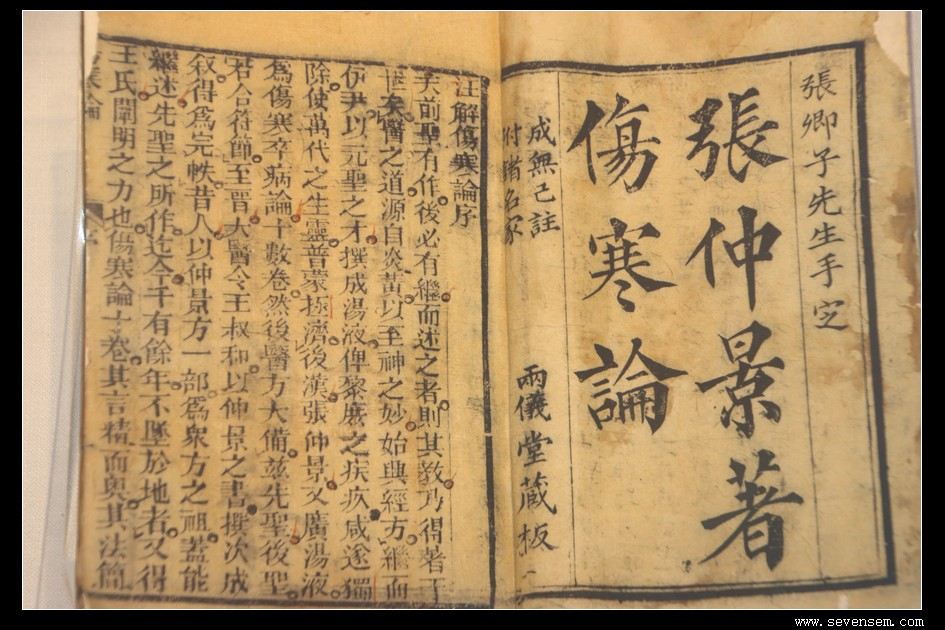 張卿子先生手定
張仲景著
傷寒論
成無己註
附諸名家
兩儀堂藏板
注解傷寒論序
夫前聖有作後必有繼而述之者則其教乃得著于
世矣醫之道源自炎黃以至神之妙始興經方繼而
伊尹以元聖之才撰成湯液俾黎庶之疾疢咸遂蠲
除使萬代之生靈普蒙拯濟後漢張仲景又廣湯液
爲傷寒卒病論十數卷然後醫方大備茲先聖後聖
若合符節至晉大醫令王叔和以仲景之書撰次成
叙得爲完帙昔人以仲景方一部爲衆方之祖蓋能
繼述先聖之所作迄今千有餘年不墜於地者又得
王氏闡明之力也傷寒論十卷其言精而奥其法簡
www.sevensem.com